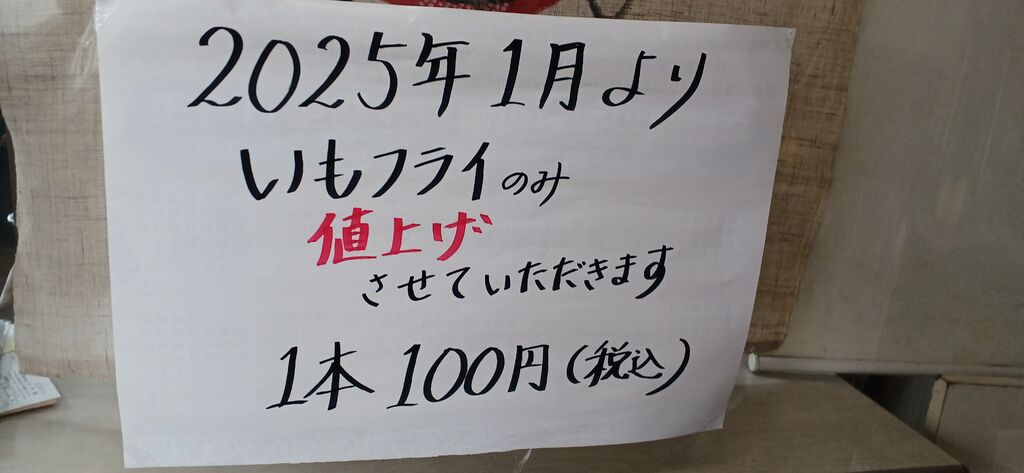 2025年1月より
いもフライのみ
値上げ
させていただきます
1本 100円(税込)